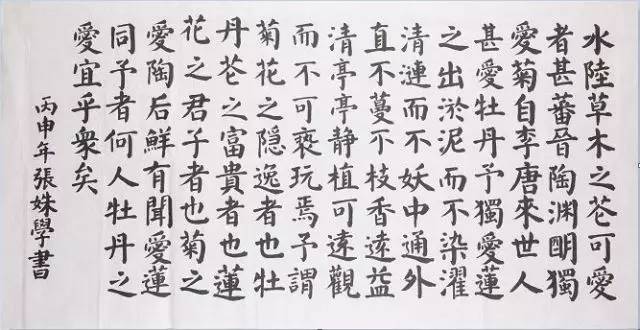 水陸草木之花可愛
者甚蕃晉陶渊明獨
愛菊自李唐來世人
甚愛牡丹予獨愛蓮
之出淤泥而不染濯
清漣而不妖中通外
直不蔓不枝香遠益
清亭亭静植可遠觀
而不可褻玩焉予謂
菊花之隐逸者也牡
丹花之富貴者也蓮
花之君子者也菊之
愛陶后鮮有聞愛蓮
同予者何人牡丹之
愛宜乎衆矣
丙申年張姝學書